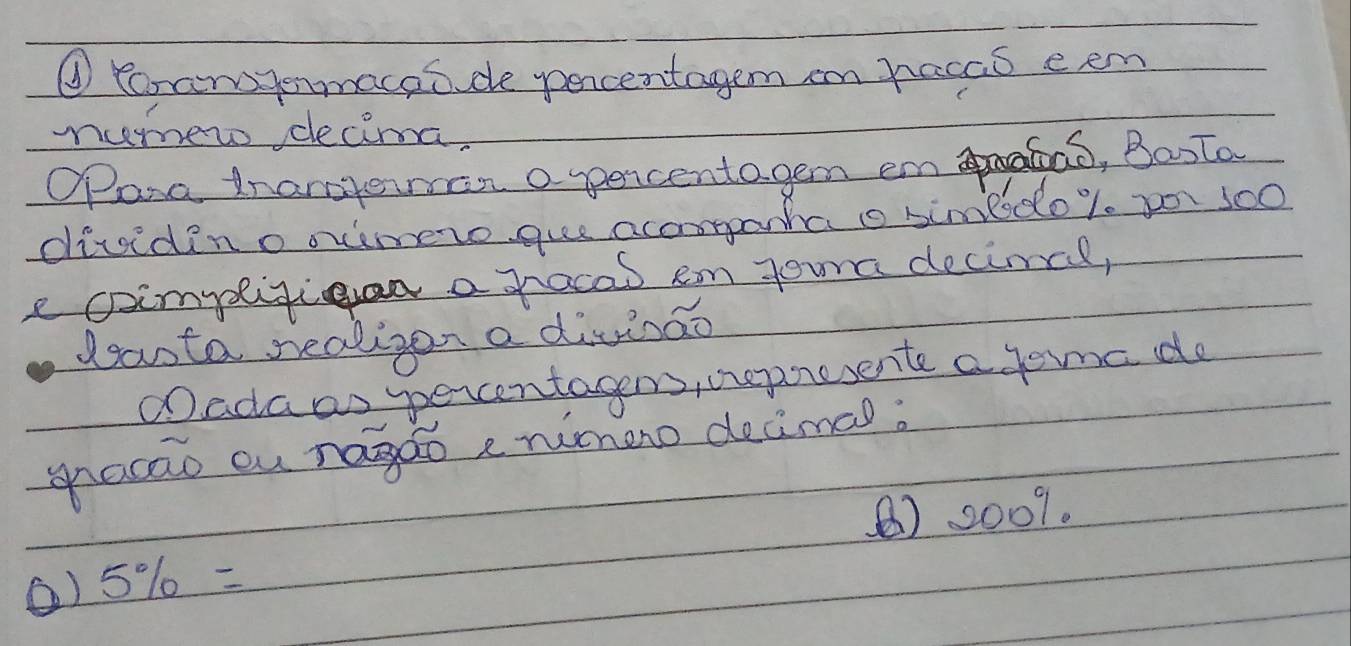 ① Transformaçaõ de porcentagem em fraçaõ e em
número decima.
Para transformar a porcentagem em fraçaõ, Basta
dividir o número que acompanha o simbolo % por 100
e simplifiqua a fracaõ em forma decimal,
basta realizar a divisão
Dada as porcentagens, represente a forma de
fracão ou razão e número decimal:
B) 200%
a) 5% =